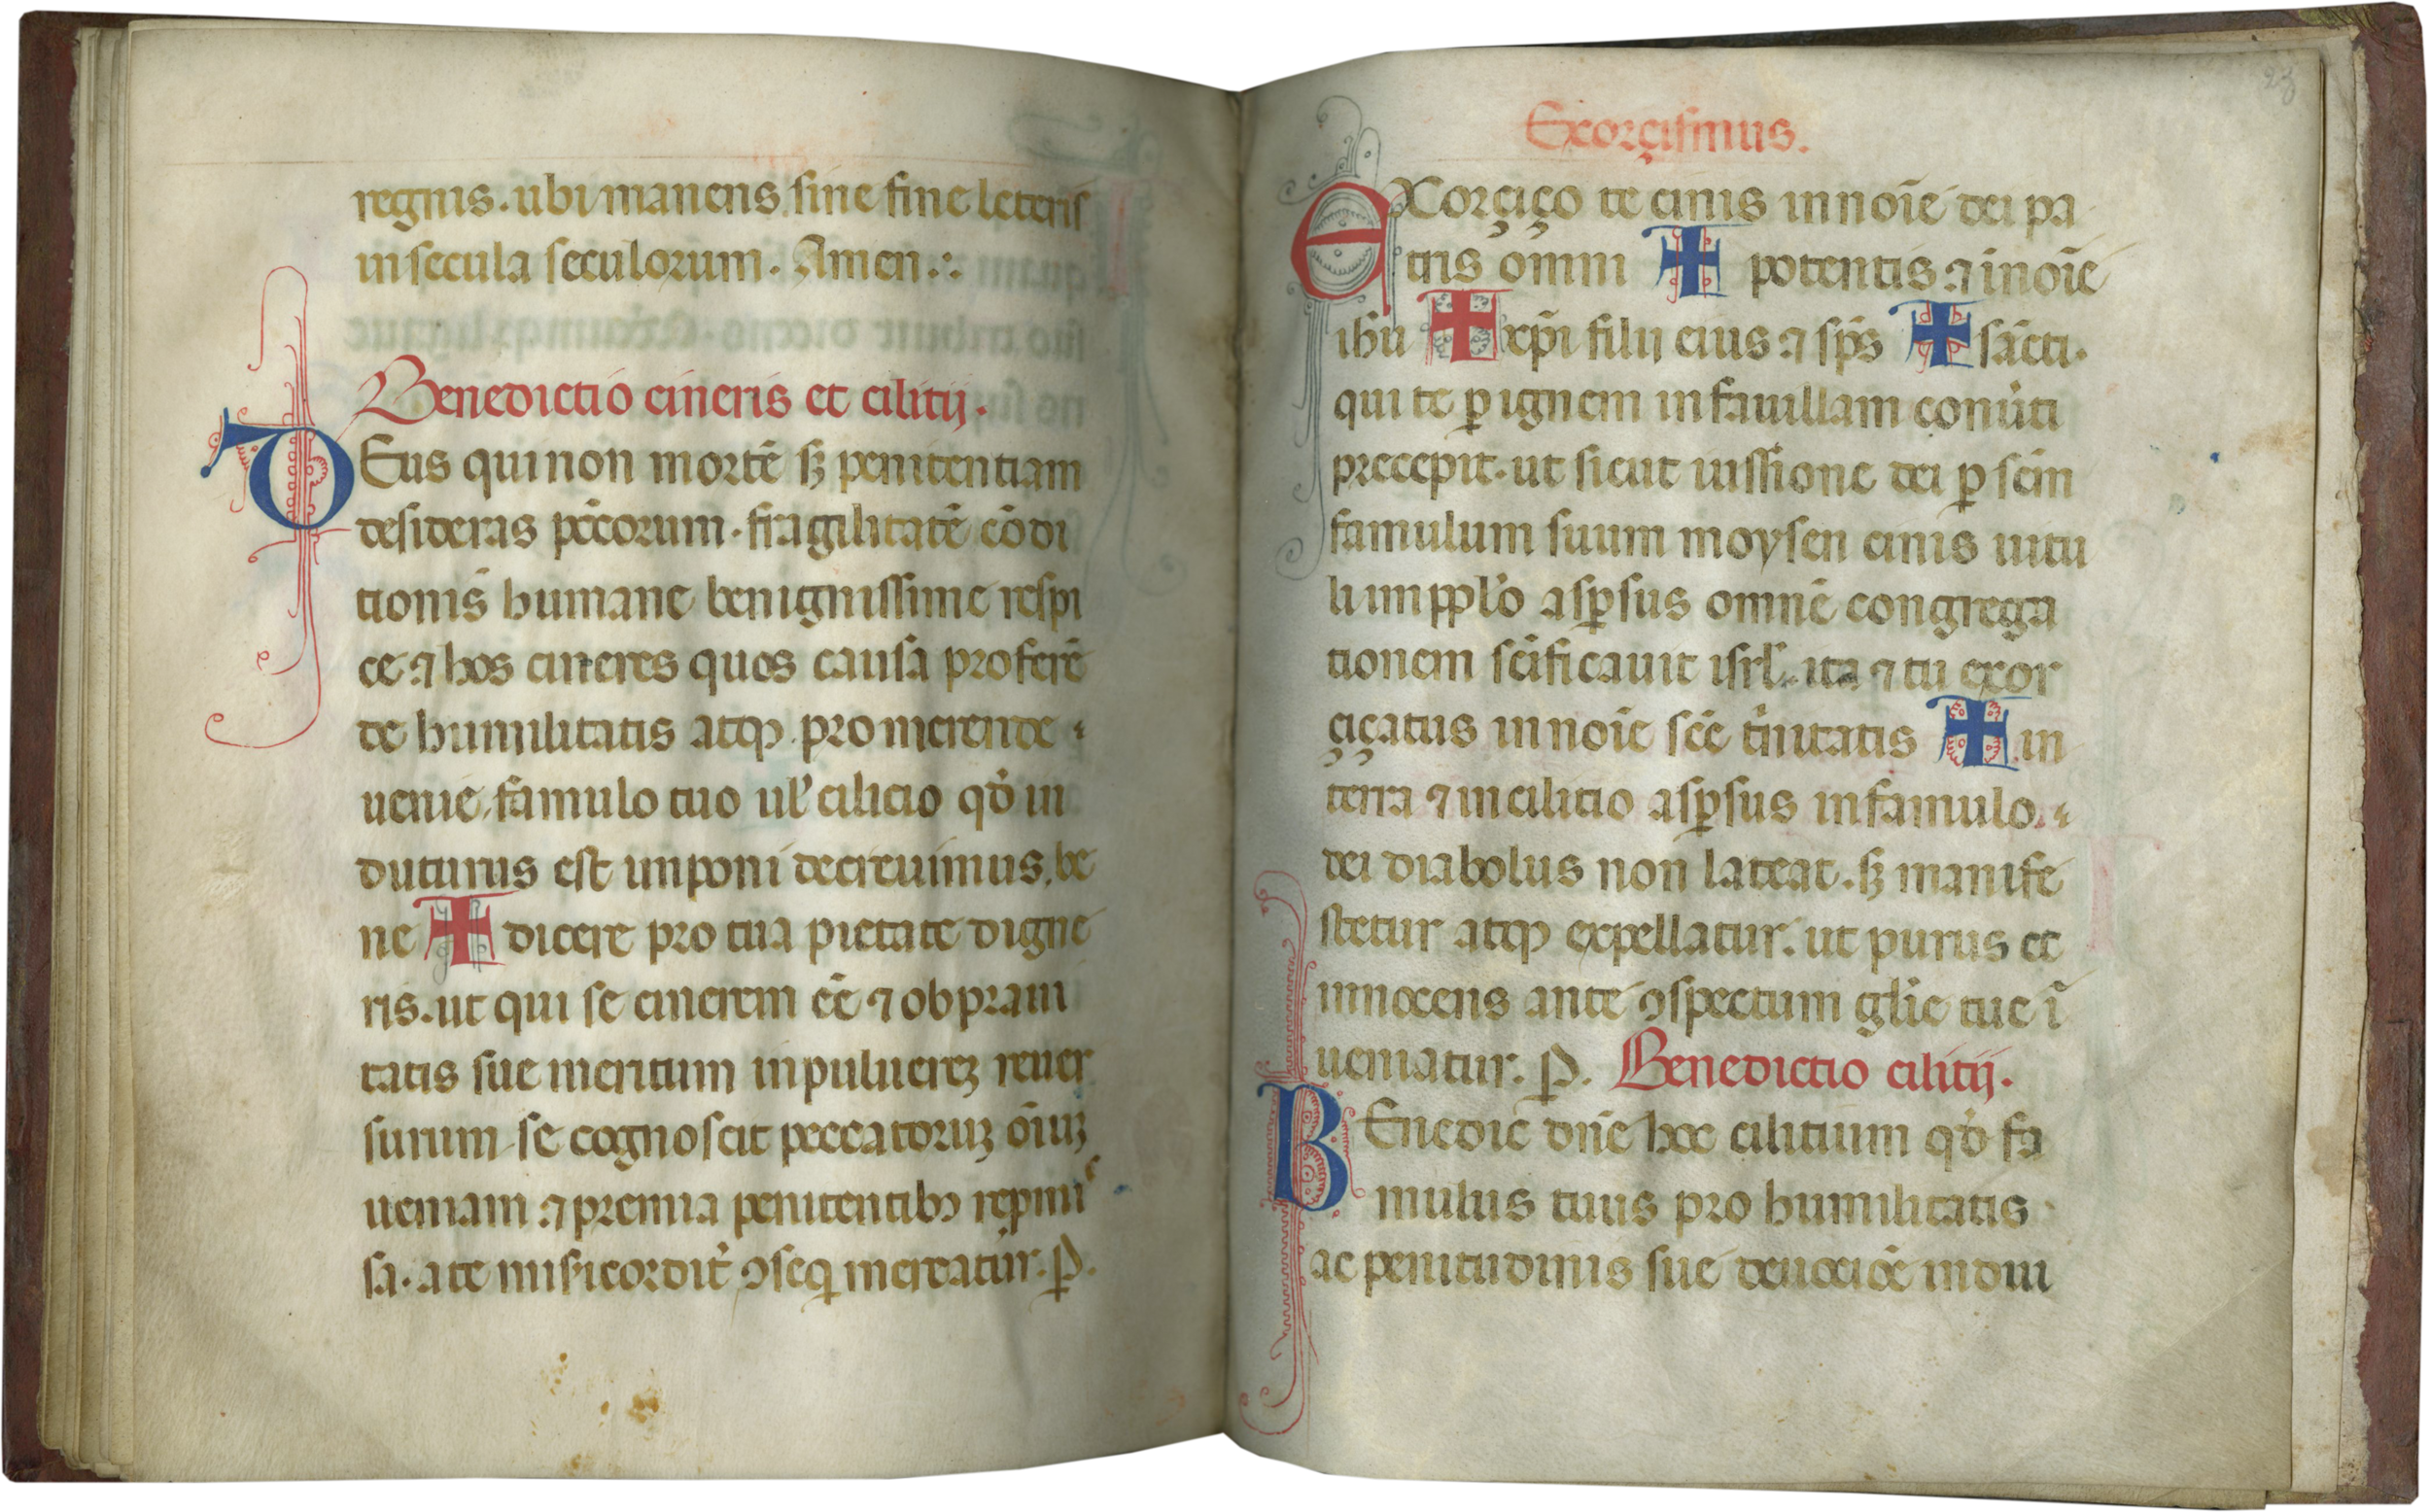 regnis. ubi manens sine fine leteris
in secula seculorum. Amen.:.
Benedictio cineris et cilitij.
DEus qui non mortē sꝫ penitentiam
desideras pc̄corum. fragilitatē cōdi
tionis humane benignissime respi
ce. ⁊ hos cineres quos causā proferē
de humilitatis atqꝫ promerende
uenie, famulo tuo ul' cilicio qḋ in
duturus est imponi decreuimus, be
ne ✠ dicere pro tua pietate digne
ris. ut qui se cinerem eē ⁊ ob praui
tatis sue meritum in puluereꝫ reuer
surum se cognoscit peccatoruꝫ oīuꝫ
ueniam ⁊ premia penitentibꝫ repmi
sa. a te misericordit̓ ꝯseq̄ mereatur. ꝑ.
Exorçismus.
EXorçiço te cinis in noīe dei pa
tris omni ✠ potentis ⁊ i noīe
ihū ✠ xp̄i filij eius ⁊ sp̄s ✠ sācti.
qui te ꝑ ignem in fauillam conūti
precepit. ut sicut uissione dei ꝑ scm̄
famulum suum moysen cinis uitu
li in pplo̓ asꝑsus omnē congrega
tionem scīficauit isrl̓. ita ⁊ tu exor
çiçatus in noīe scē t̓nitatis ✠ in
terra ⁊ in cilitio asꝑsus in famulo
dei diabolus non lateat. sꝫ manife
stetur atqꝫ expellatur. ut purus et
innocens ante ꝯspectum glīe tue ī
ueniatur. ꝑ. Benedictio cilitij.
BEnedic dn̄e hoc cilitium qḋ fa
mulus tuus pro humilitatis
ac penitudinis sue deuocioē indui
23